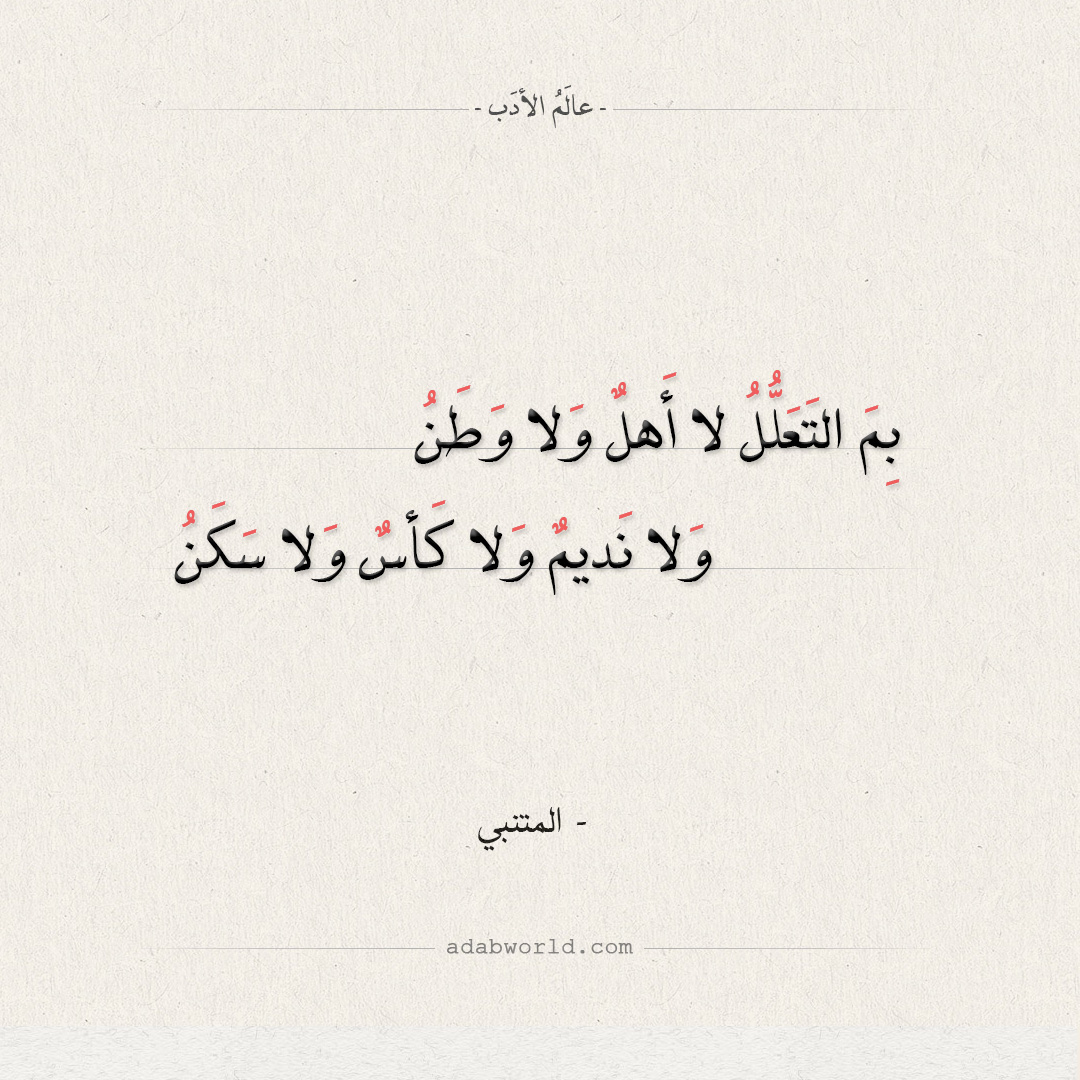 - عالَمُ الأدَب -
بِمَ التَعَلُّلُ لا أَهلٌ وَلا وَطَنُ
وَلا نَديمٌ وَلا كَأسٌ وَلا سَكَنُ
- المتنبي
adabworld.com